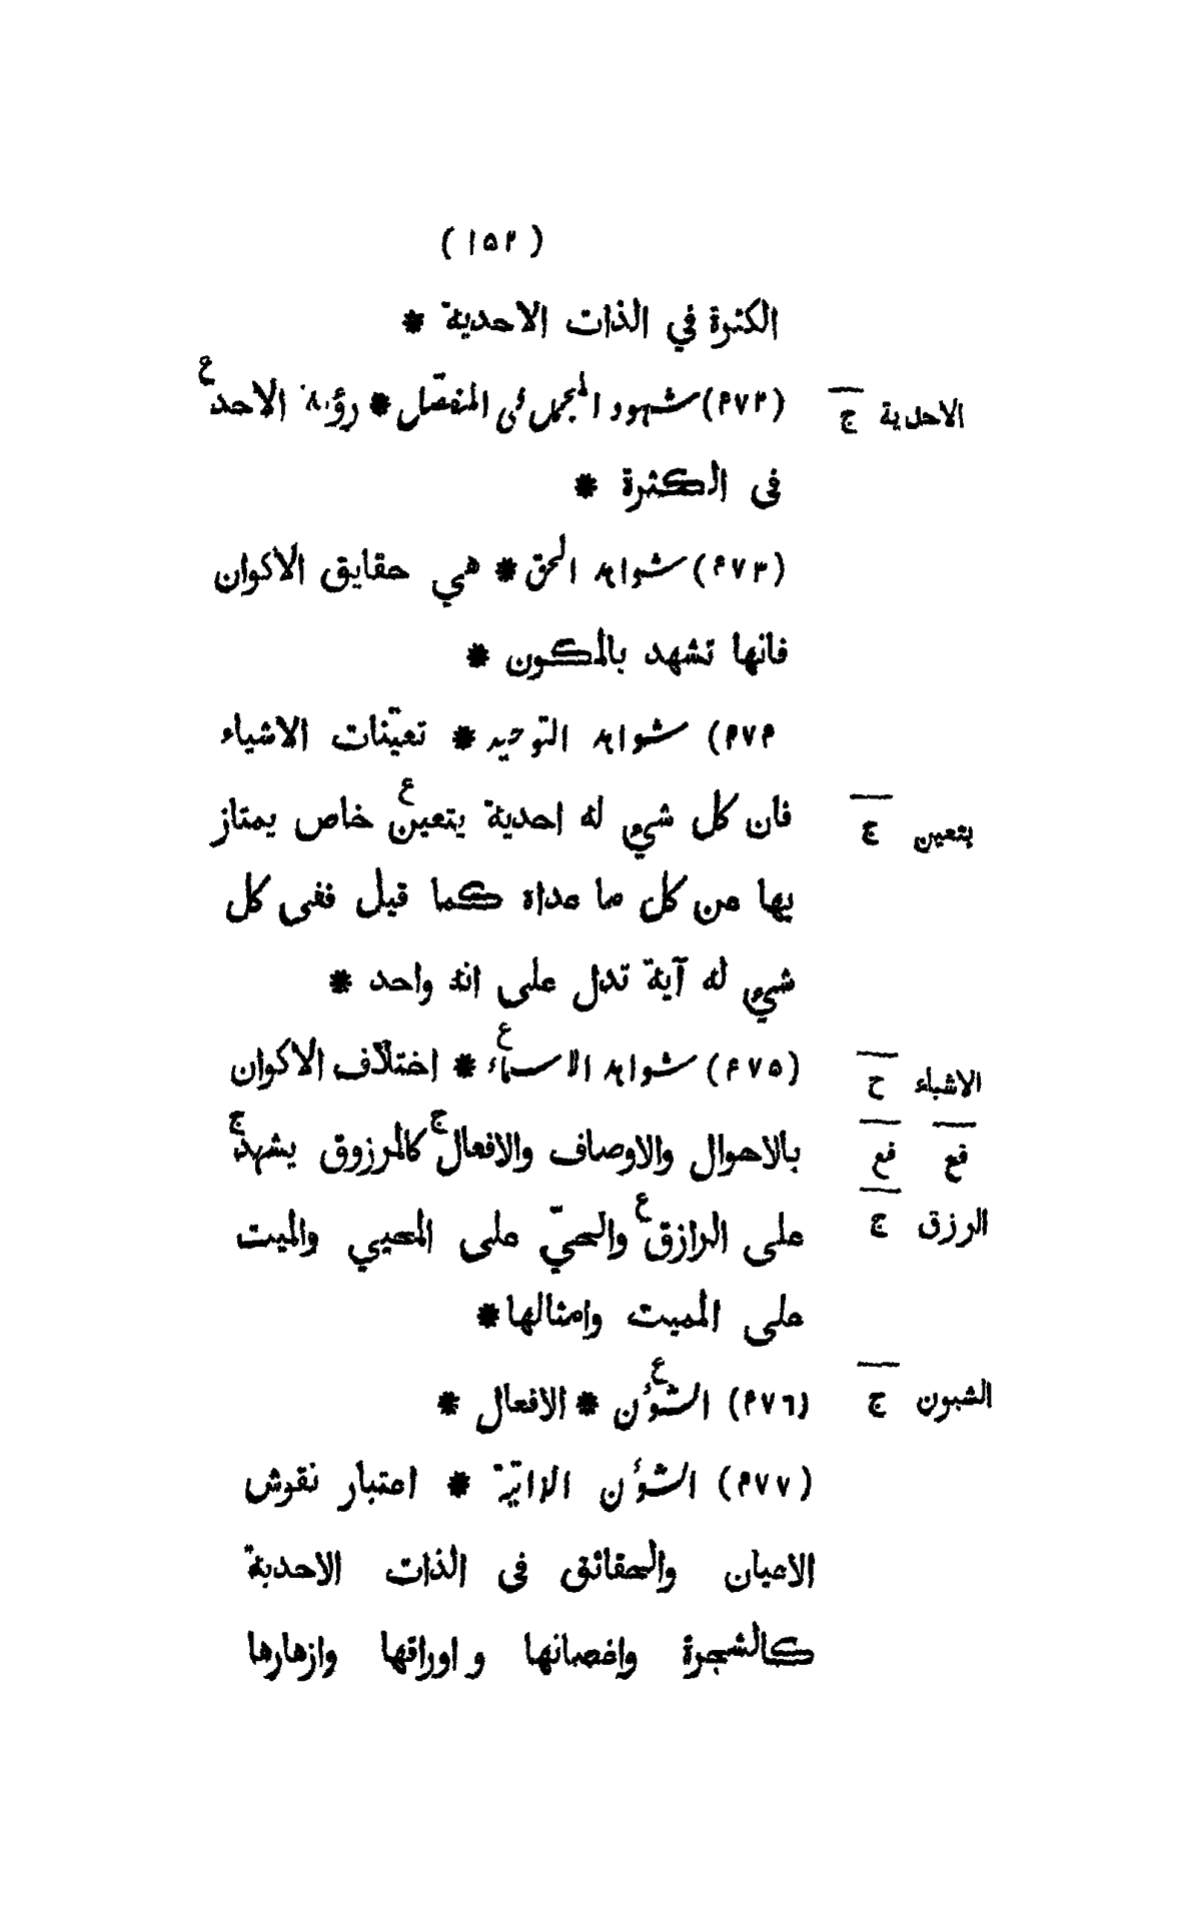 (١٥٢)
الكثرة في الذات الاحدية *
(٤٧٢) شهود المجمل فى المفصّل * رؤية الاحد ع
الاحدية ج
فى الكثرة *
(٤٧٣) شواهد الحق * هي حقايق الاكوان
فانها تشهد بالمكون *
٤٧٤) شواهد التوحيد * تعيّنات الاشياء
فان كل شيء له احدية يتعين ع خاص يمتاز
بتعين ج
بها عن كل ما عداه كما قيل ففى كل
شيء له آية تدل على انه واحد *
(٤٧٥) شواهد الاسماء ع * اختلاف الاكوان
الاشياء ح
بالاحوال والاوصاف والافعال ج كالمرزوق يشهد ج
فع فع
على الرازق ع والحيّ على المحيي والميت
الرزق ج
على المميت وامثالها *
(٤٧٦) الشؤن ع * الافعال *
الشبون ج
(٤٧٧) الشؤن الذاتيّة * اعتبار نقوش
الاعيان والحقائق فى الذات الاحدية
كالشجرة واغصانها و اوراقها وازهارها